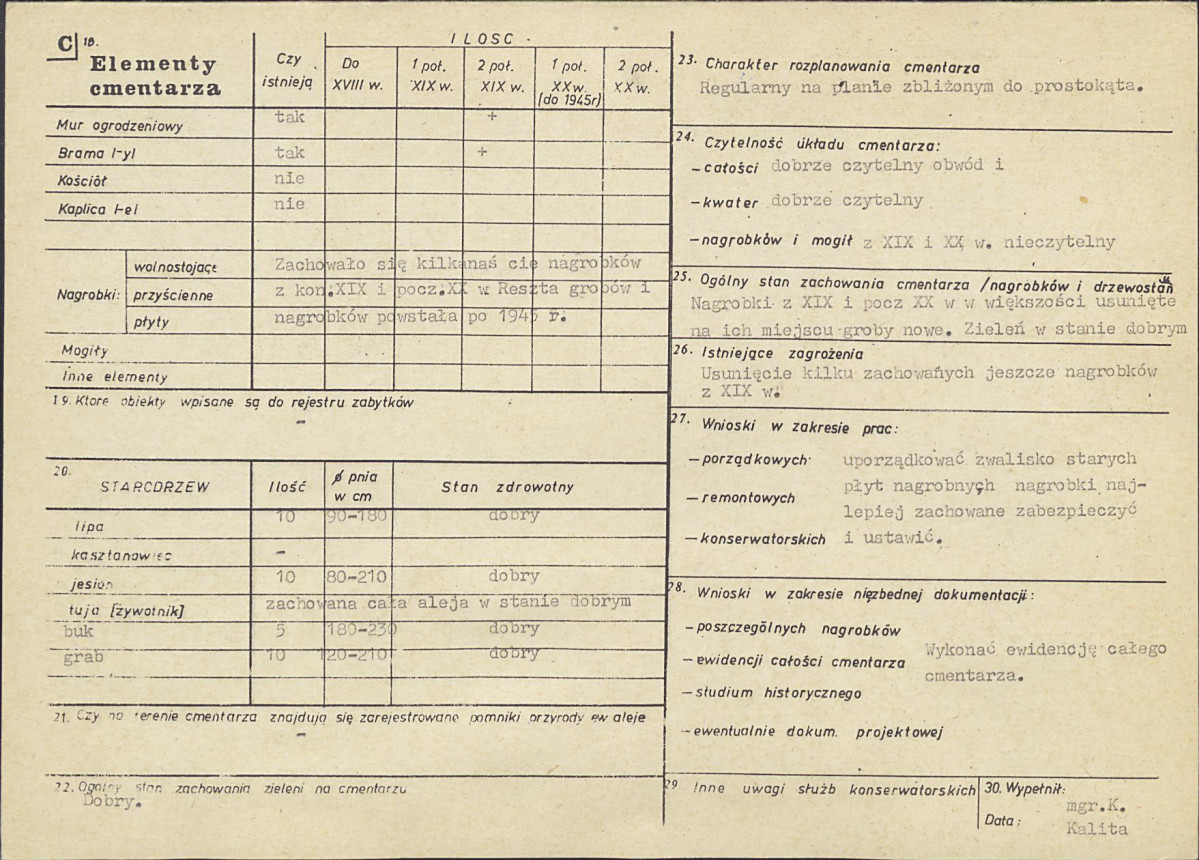 C 18.
Elementy cmentarza
Czy istnieją
ILOSC
Do XVIII w.
1 poł. XIX w.
2 poł. XIX w.
1 poł. XX w. (do 1945r)
2 poł. XX w.
Mur ogrodzeniowy tak +
Brama /-y/ tak +
Kościół nie
Kaplica /-e/ nie
Nagrobki:
wolnostojące Zachowało się kilkanaś cie nagrobków
przyścienne z kon.XIX i pocz.XX w Reszta grobów i
płyty nagrobków powstała po 1945 r.
Mogiły
Inne elementy
19. Które obiekty wpisane są do rejestru zabytków
-
20.
STARODRZEW Ilość ∅ pnia w cm Stan zdrowotny
lipa 10 90-180 dobry
kasztanowiec -
jesion 10 80-210 dobry
tuja [żywotnik] zachowana cała aleja w stanie dobrym
buk 5 180-230 dobry
grab 10 120-210 dobry
21. Czy na terenie cmentarza znajdują się zarejestrowane pomniki przyrody ew aleje
-
22. Ogólny stan zachowania zieleni na cmentarzu
Dobry.
23. Charakter rozplanowania cmentarza
Regularny na planie zbliżonym do prostokąta.
24. Czytelność układu cmentarza:
- całości dobrze czytelny obwód i
- kwater dobrze czytelny
- nagrobków i mogił z XIX i XX w. nieczytelny
25. Ogólny stan zachowania cmentarza /nagrobków i drzewostan
Nagrobki z XIX i pocz XX w w większości usunięte
na ich miejscu groby nowe. Zieleń w stanie dobrym
26. Istniejące zagrożenia
Usunięcie kilku zachowanych jeszcze nagrobków
z XIX w.
27. Wnioski w zakresie prac:
- porządkowych uporządkować zwalisko starych
płyt nagrobnych nagrobki naj-
- remontowych
lepiej zachowane zabezpieczyć
- konserwatorskich i ustawić.
28. Wnioski w zakresie niezbednej dokumentacji:
- poszczególnych nagrobków
- ewidencji całości cmentarza Wykonać ewidencję całego
cmentarza.
- studium historycznego
- ewentualnie dokum. projektowej
29. Inne uwagi służb konserwatorskich
30. Wypełnił:
mgr.K.
Data: Kalita